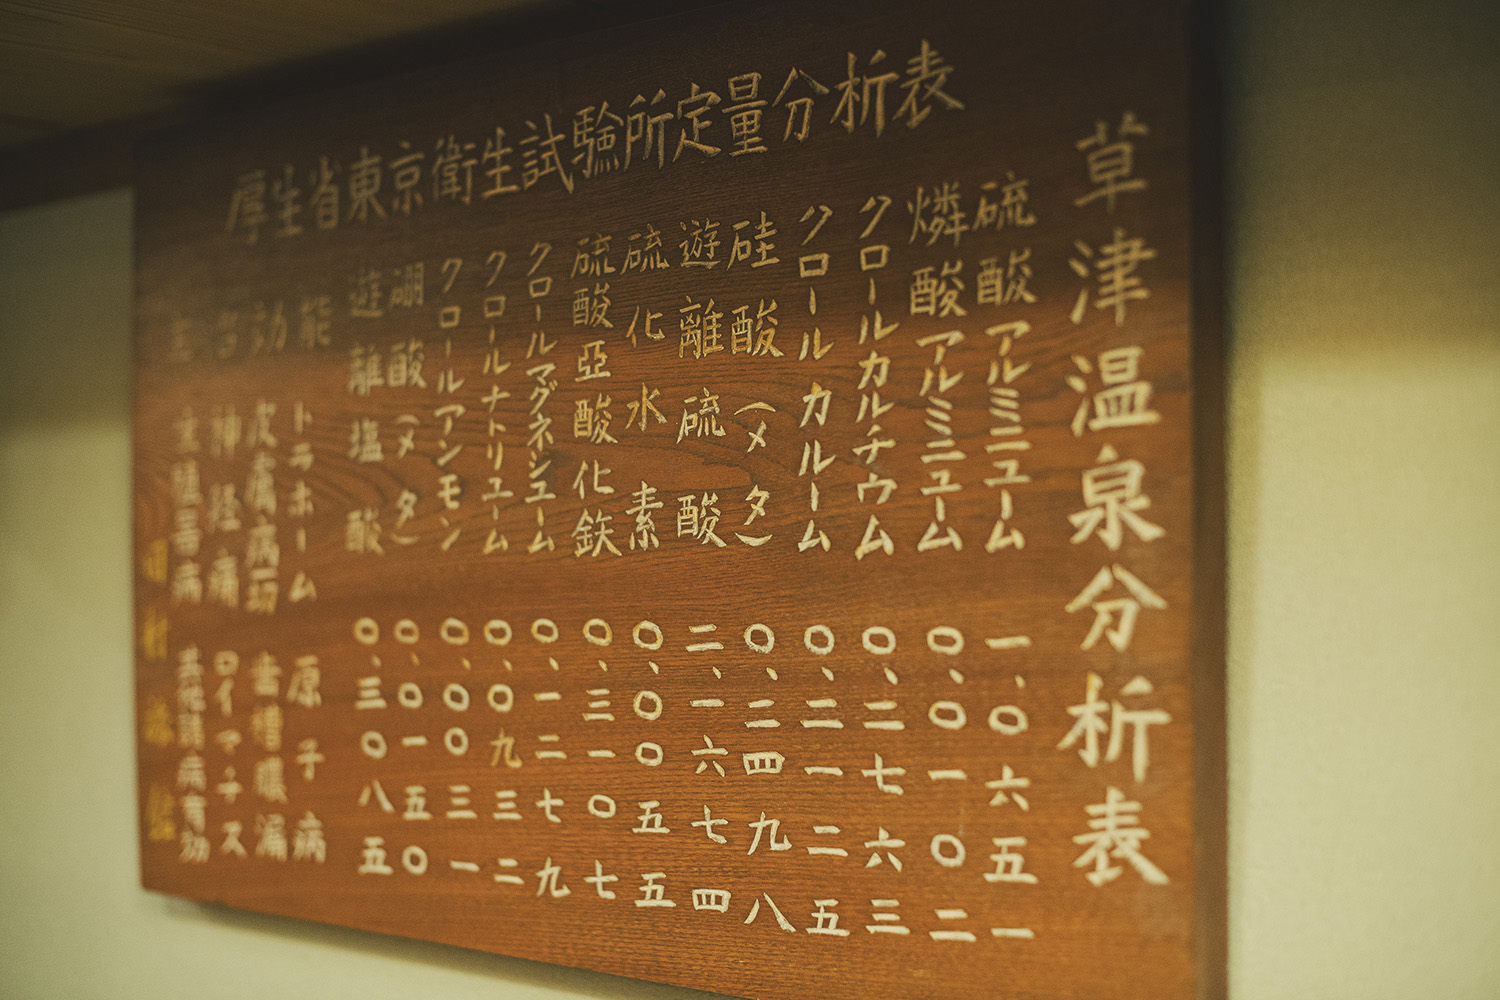 草津温泉分析表
厚生省東京衛生試験所定量分析表
硫酸アルミニューム 一、〇六五一
燐酸アルミニューム 〇、〇一〇二
クロールカルチウム 〇、二七六三
クロールカルーム 〇、二一二五
硅酸(メタ) 〇、二四九八
遊離硫酸 二、一六七四
硫化水素 〇、〇〇五五
硫酸亜酸化鉄 〇、三一〇七
クロールマグネシューム 〇、一二七九
クロールナトリューム 〇、〇九三二
クロールアンモン 〇、〇〇三一
硼酸(メタ) 〇、〇一五〇
遊離塩酸 〇、三〇八五
能 トラホーム 原子病
効 皮膚病 歯槽膿漏
神経痛 ロイマチス
病 其他諸病有効